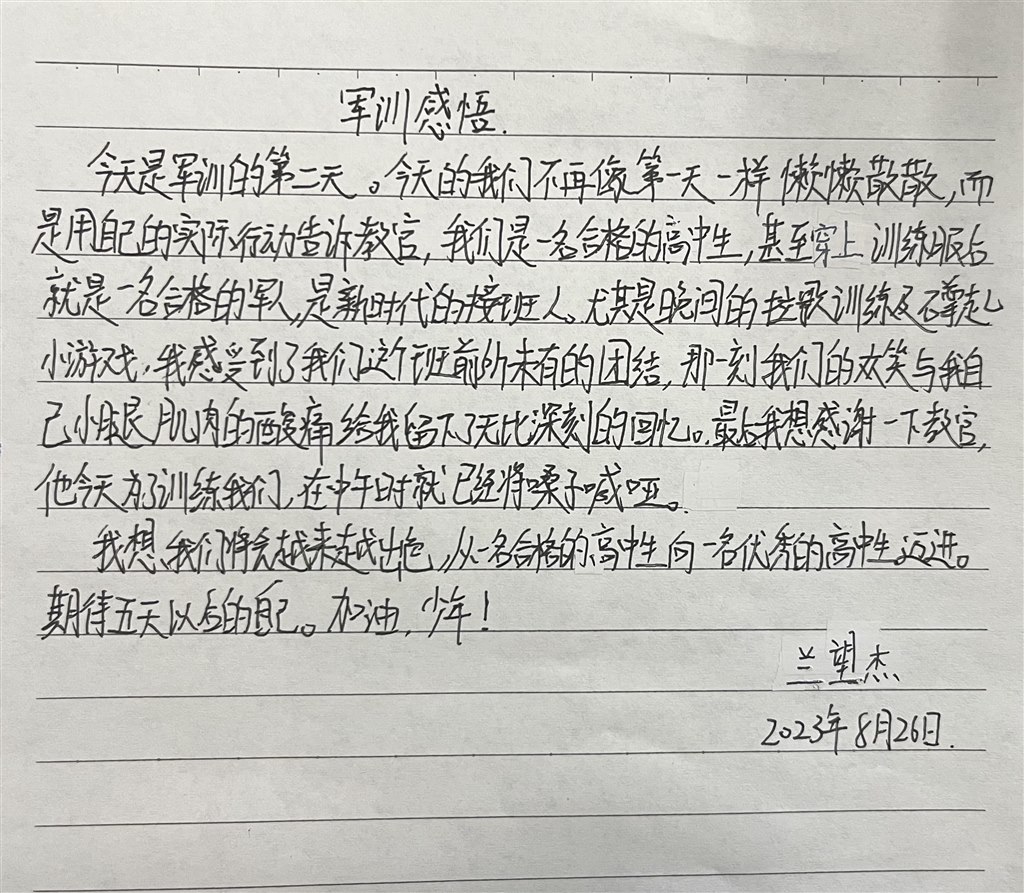 军训感悟.
今天是军训的第二天。今天的我们不再像第一天一样懒懒散散,而
是用自己的实际行动告诉教官,我们是一名合格的高中生,甚至穿上训练服后
就是一名合格的军人,是新时代的接班人。尤其是晚间的拉歌训练及石墩起
小游戏,我感受到了我们这个班前所未有的团结,那一刻我们的欢笑与我自
己小腿肌肉的酸痛给我留下了无比深刻的回忆。最后我想感谢一下教官,
他今天为了训练我们,在中午时就已经将嗓子喊哑。
我想,我们将会越来越出色,从一名合格的高中生向一名优秀的高中生迈进。
期待五天以后的自己。加油,少年!
兰望杰
2023年8月26日.